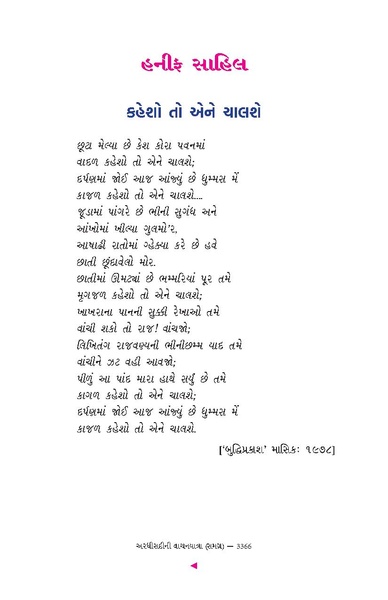 હનીફ સાહિલ
કહેશો તો એને ચાલશે
છૂટા મેલ્યા છે કેશ કોરા પવનમાં
વાદળ કહેશો તો એને ચાલશે;
દર્પણમાં જોઈ આજ આંજ્યું છે ધુમ્મસ મેં
કાજળ કહેશો તો એને ચાલશે....
જૂડામાં પાંગરે છે ભીની સુગંધ અને
આંખોમાં ખીલ્યા ગુલમો'ર,
આષાઢી રાતોમાં ગ્હેક્યા કરે છે હવે
છાતી છૂંદાવેલો મોર.
છાતીમાં ઊમટ્યાં છે ભમ્મરિયાં પૂર તમે
મૃગજળ કહેશો તો એને ચાલશે;
ખાખરાના પાનની સુક્કી રેખાઓ તમે
વાંચી શકો તો રાજ! વાંચજો;
લિખિતંગ રાજવણ્યની ભીનીછમ્મ યાદ તમે
વાંચીને ઝટ વહી આવજો;
પીળું આ પાંદ મારા હાથે સર્યું છે તમે
કાગળ કહેશો તો એને ચાલશે;
દર્પણમાં જોઈ આજ આંજ્યું છે ધુમ્મસ મેં
કાજળ કહેશો તો એને ચાલશે.
['બુદ્ધિપ્રકાશ' માસિક: ૧૯૭૮]
અરધીસદીની વાચનયાત્રા (સમગ્ર) — 3366